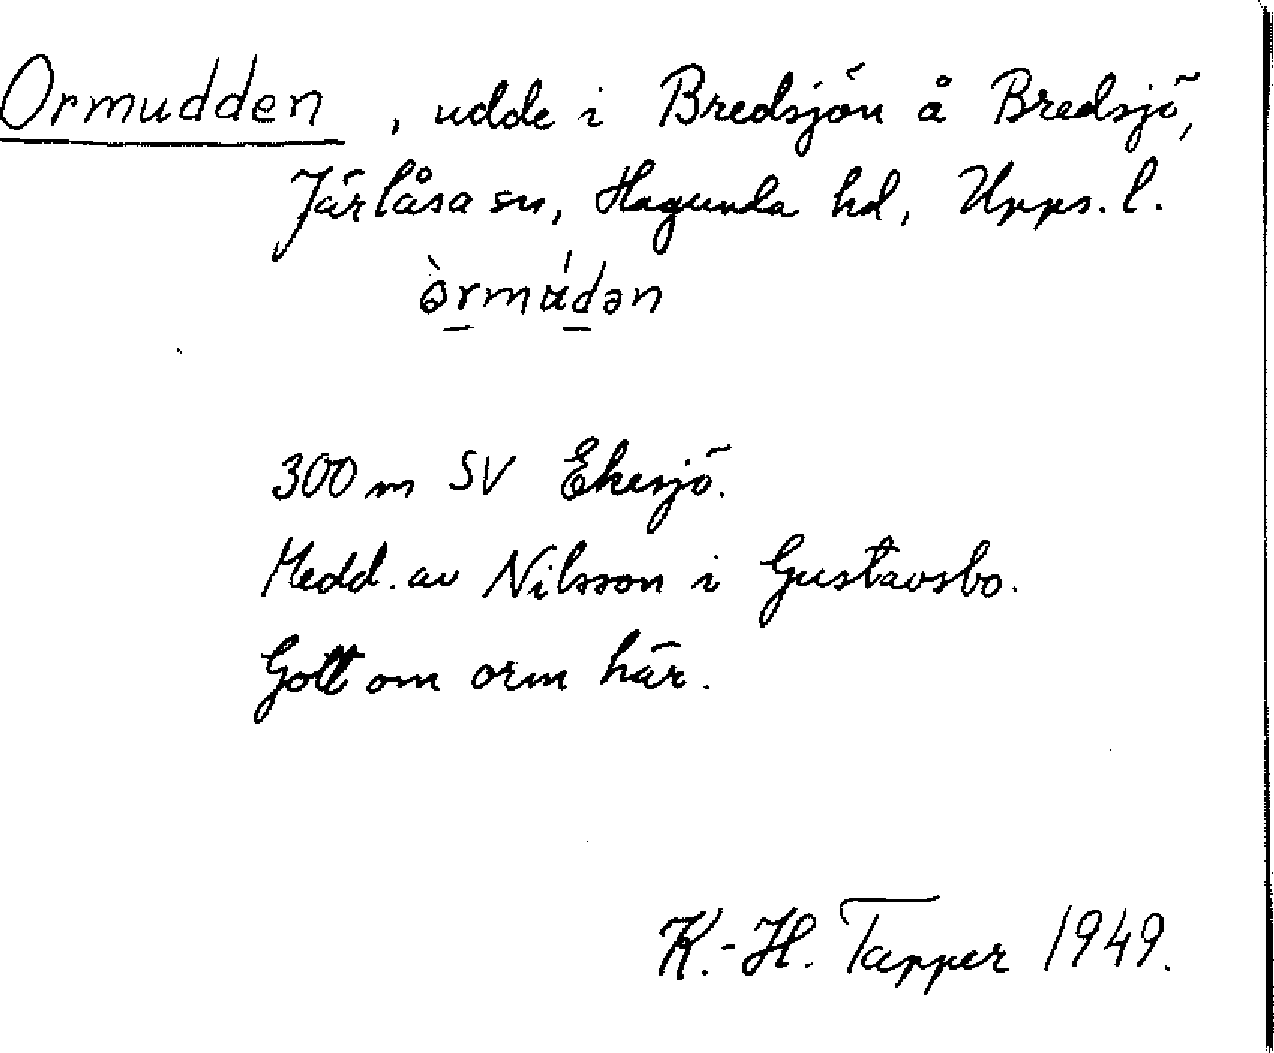 Ormudden, udde i Bredsjön å Bredsjö,
Järlåsa sn, Hagunda hd, Upps. l.
300 m SV Ekesjö.
Medd. av Nilsson i Gustavsbo.
Gott om orm här.
K.-H. Tapper 1949.